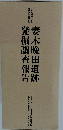 妻木晩田遺跡
発掘調査報告